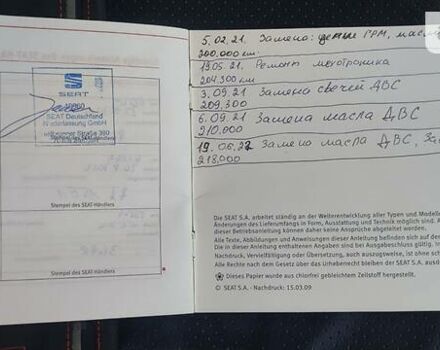 SEAT
SEAT Deutschland
Niederlassung GmbH
Stempel des SEAT-Händlers
Stempel des SEAT-Händlers
Stempel des SEAT-Händlers
5.02.21. Замена: цепи ГРМ, масла
200.000 км.
19.05.21. Ремонт мехотроника
204.300 км
3.09.21 Замена свечей ДВС
209.300
6.09.21 Замена масла ДВС
210.000
19.06.22 Замена масла ДВС,
218.000
Die SEAT S.A. arbeitet ständig an der Weiterentwicklung aller Typen und Modelle
Änderungen des Lieferumfangs in Form, Ausstattung und Technik möglich sind. A
dieser Betriebsanleitung können daher keine Ansprüche abgeleitet werden.
Alle Texte, Abbildungen und Anweisungen dieser Anleitung befinden sich auf de
Die in dieser Anleitung enthaltenen Angaben sind bei Ausgabeschluss gültig.
Nachdruck, Vervielfältigung oder Übersetzung, auch auszugsweise, ist ohne sch
Alle Rechte nach dem Gesetz über das Urheberrecht bleiben der SEAT S.A. aus
Dieses Papier wurde aus chlorfrei gebleichtem Zellstoff hergestellt.
© SEAT S.A. - Nachdruck: 15.03.09